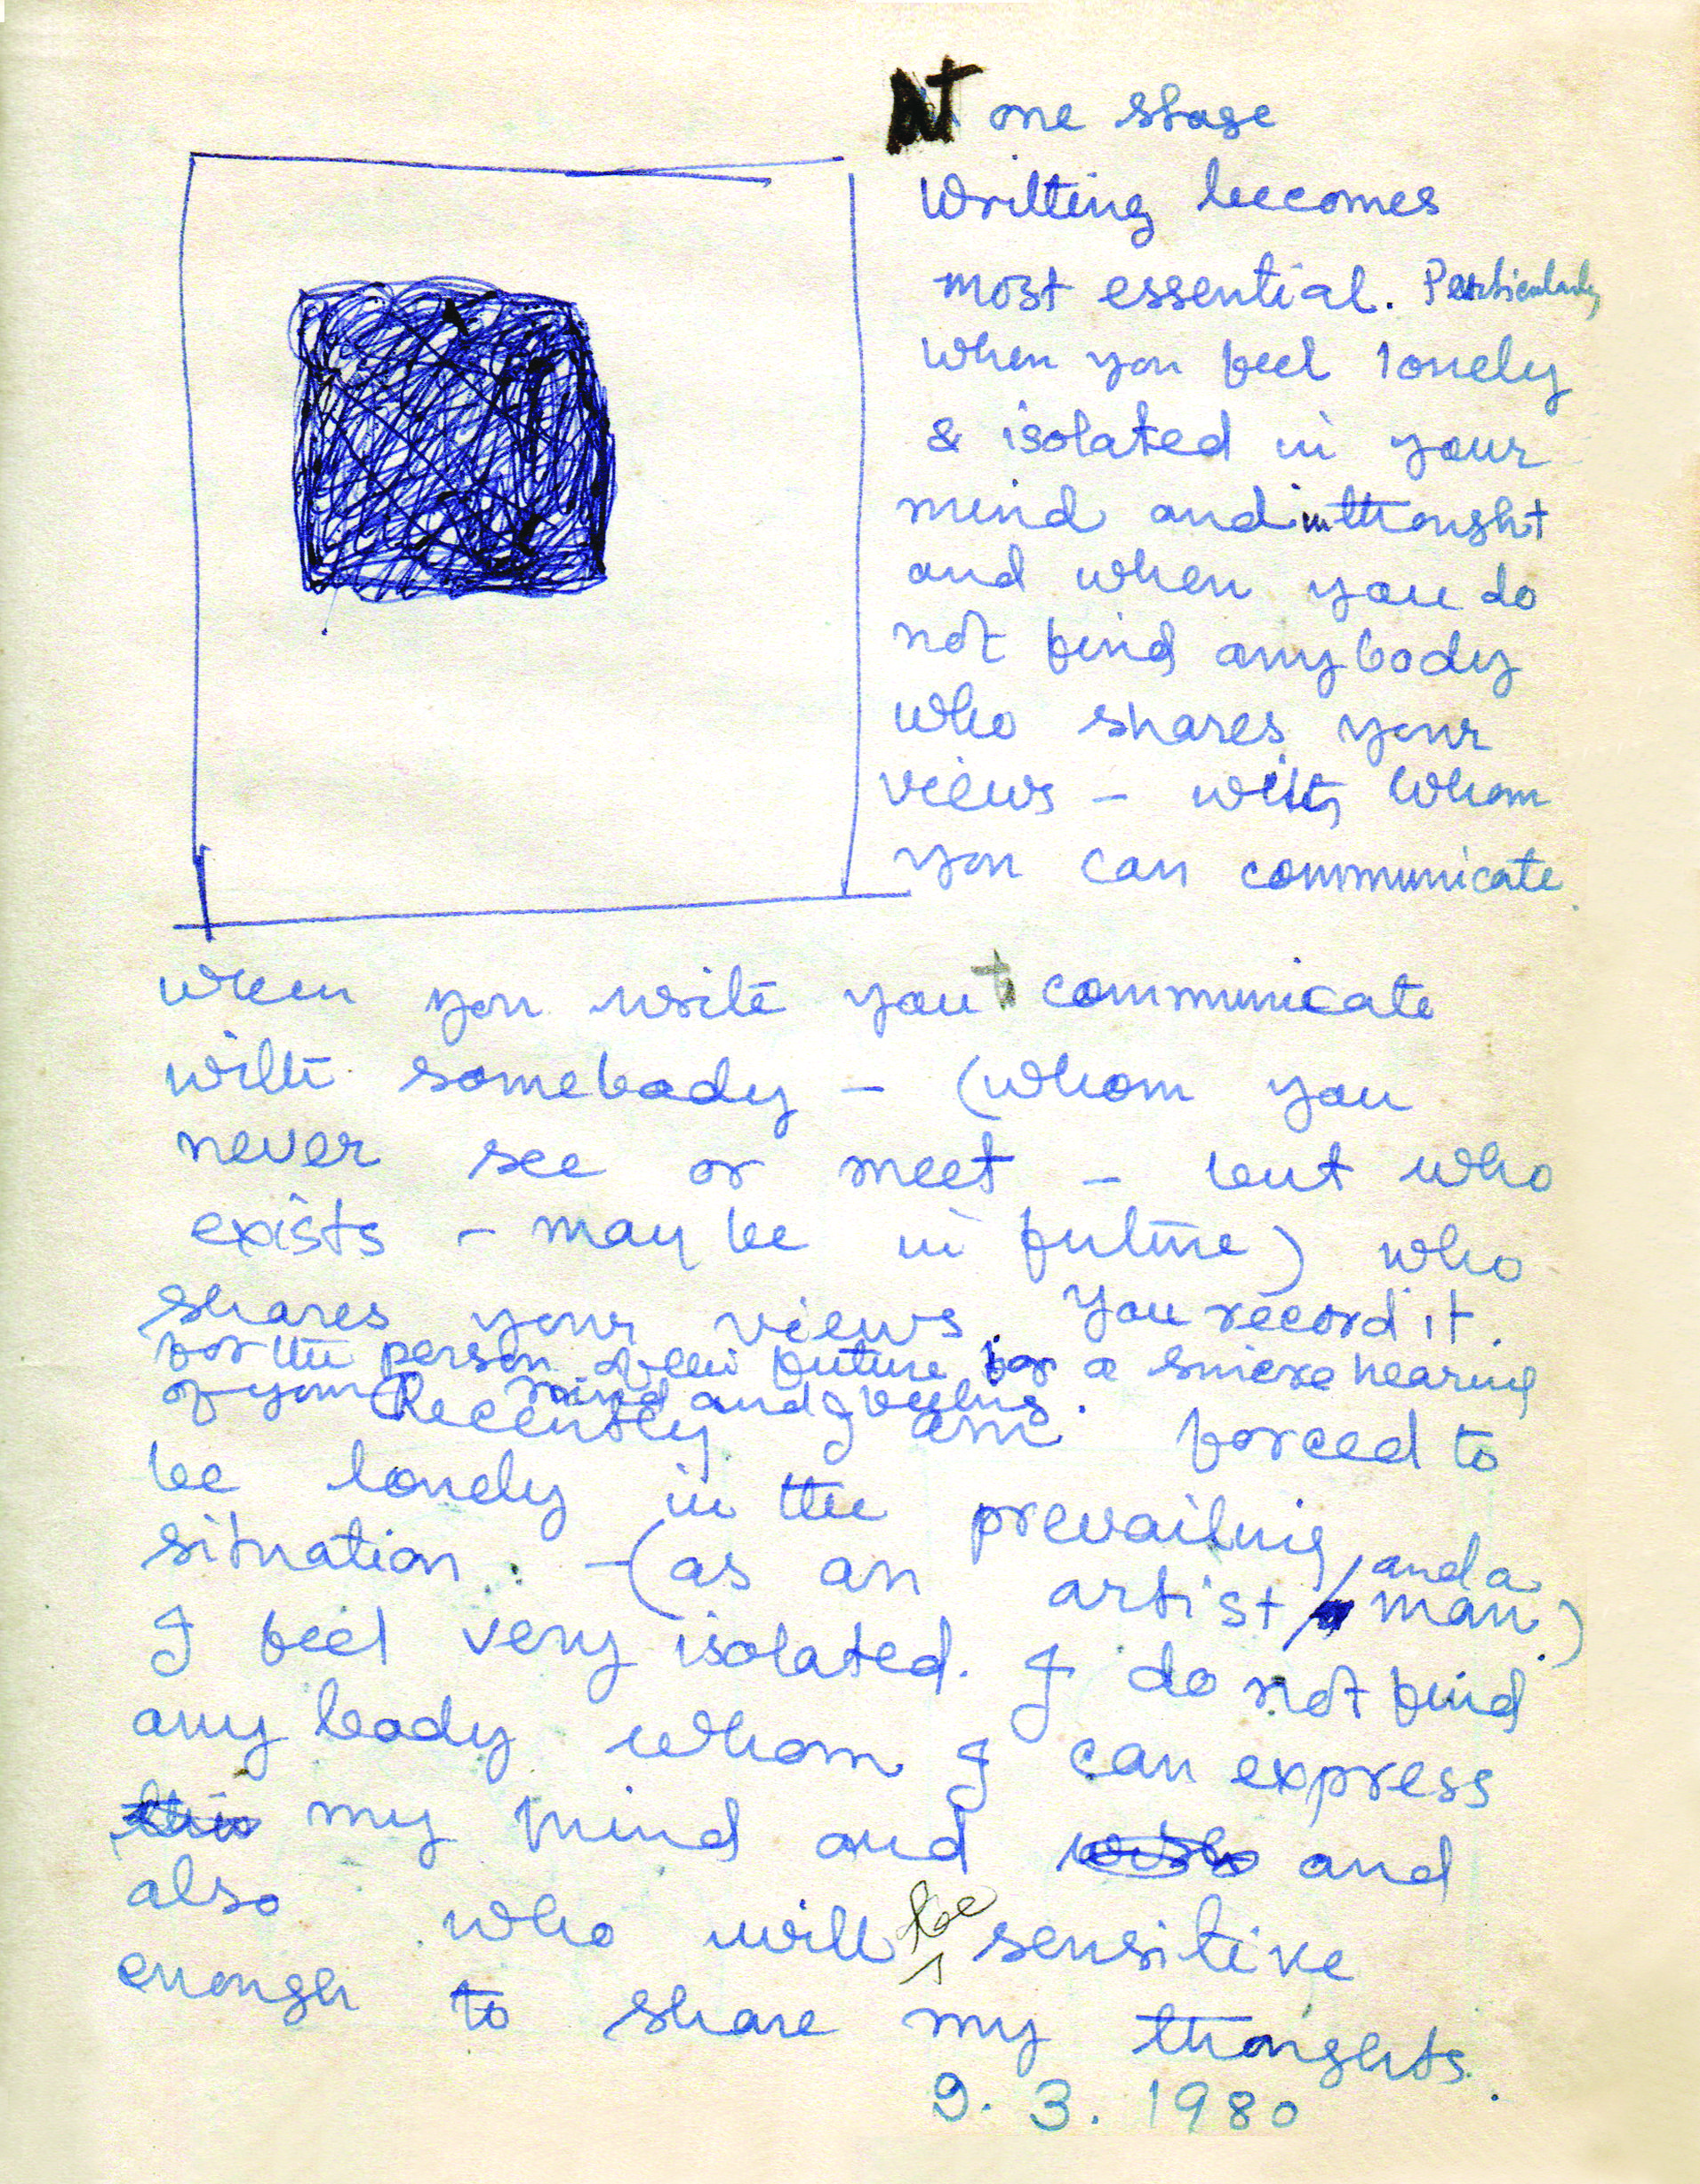 At one stage
Writting becomes
most essential. Particularly
when you feel lonely
& isolated in your
mind and in thought
and when you do
not find any body
who shares your
views – with whom
you can communicate.
when you write you communicate
with somebody – (whom you
never see or meet – but who
exists – may be in future) who
shares your views. You record it.
for the person of the future for a sincere hearing
of your mind and feelings.
Recently I am forced to
be lonely in the prevailing
situation. – (as an artist, and a
man.)
I feel very isolated. I do not find
any body whom I can express
my mind and and
also who will be sensitive
enough to share my thoughts.
9. 3. 1980